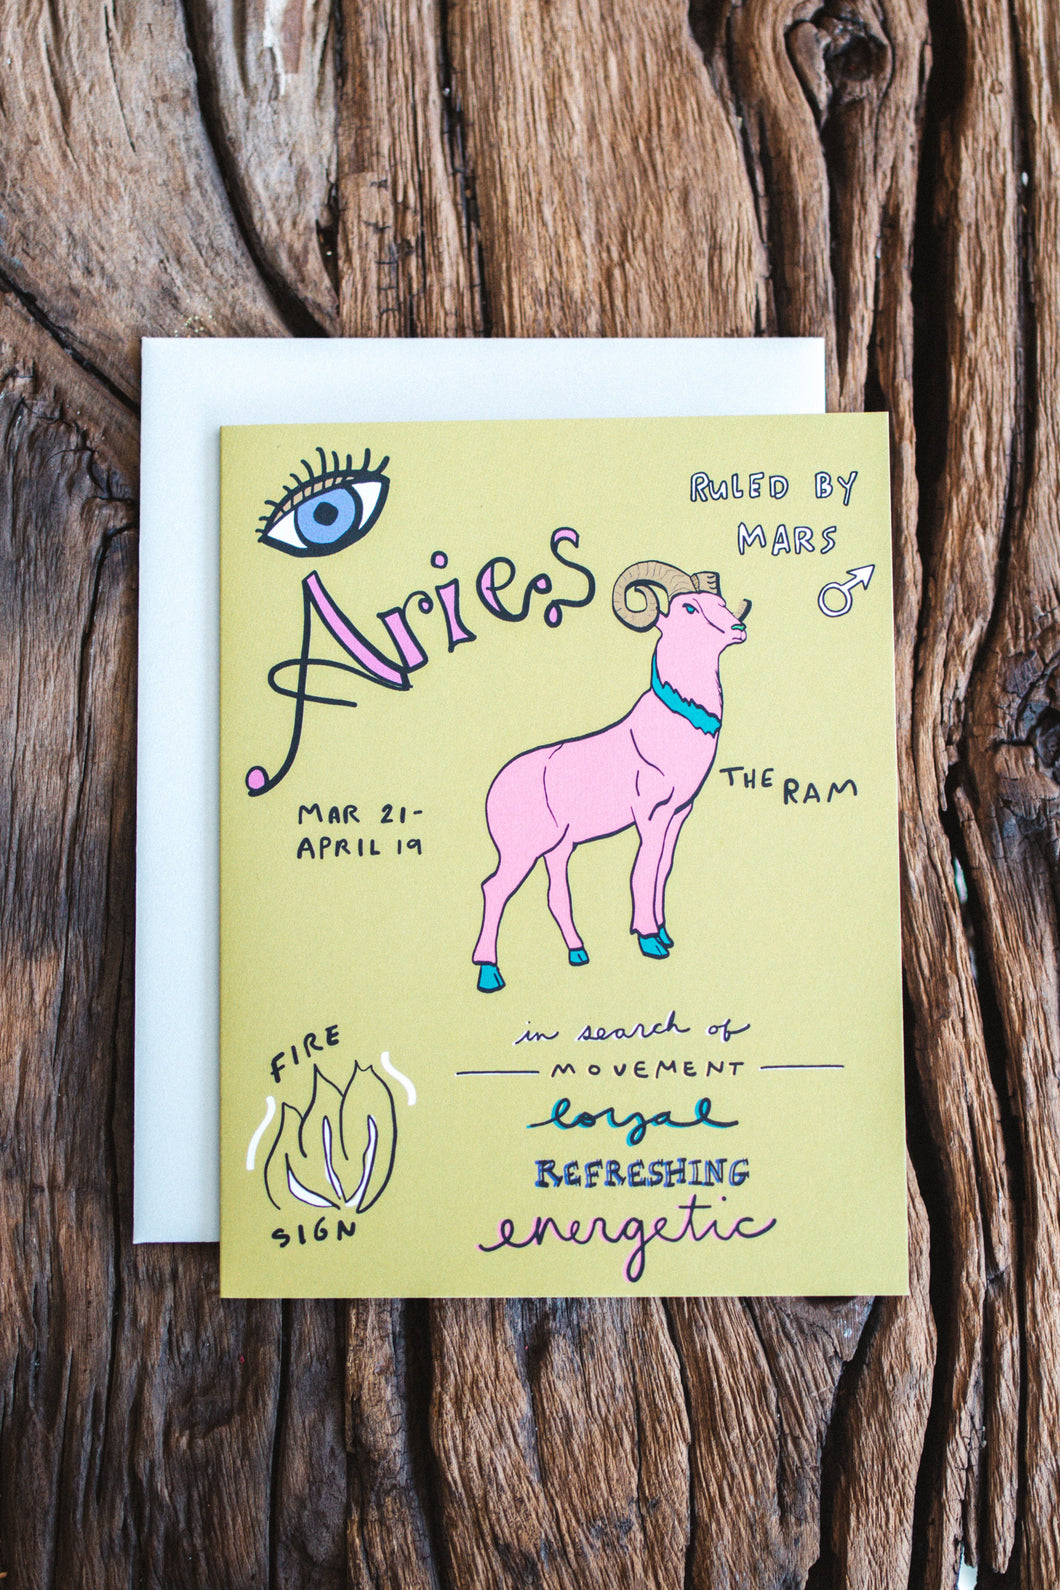 RULED BY
MARS
Aries
THE RAM
MAR 21-
APRIL 19
FIRE
SIGN
in search of
MOVEMENT
loyal
REFRESHING
energetic